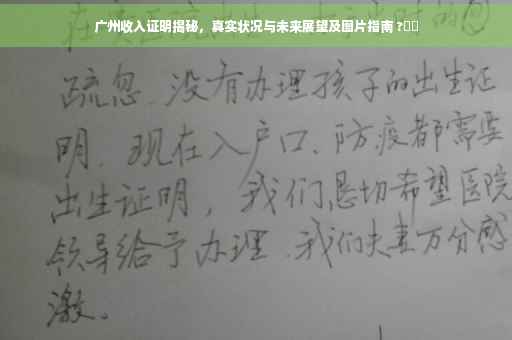 广州收入证明揭秘，真实状况与未来展望及图片指南？
疏忽．没有办理孩子的出生证
明．现在入户口、防疫都需要
出生证明，我们恳切希望医院
领导给予办理．我们夫妻万分感
激。